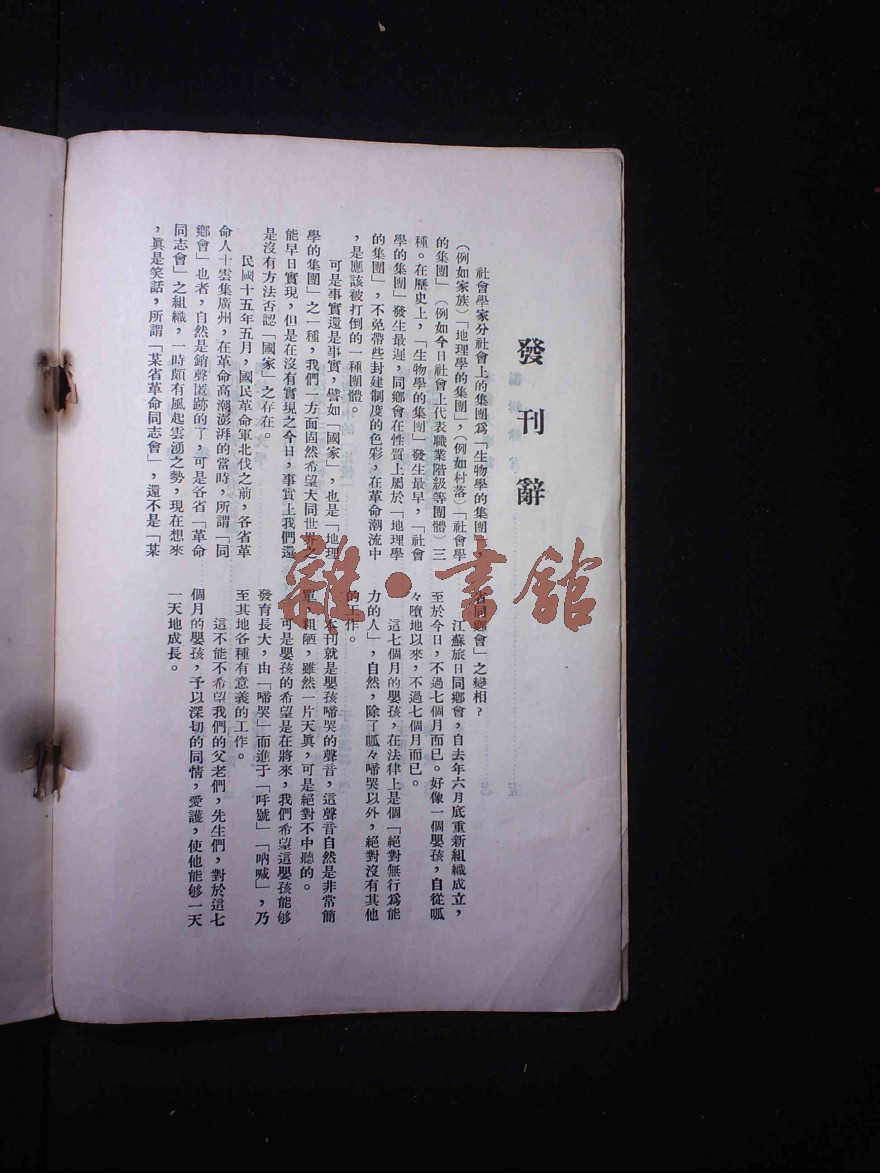 發刊辭
社會學家分社會上的集團爲「生物學的集團」，
（例如家族）「地理學的集團」，（例如村落）「社會學
的集團」（例如今日社會上代表職業階級等團體）三
種。在歷史上，「生物學的集團」發生最早，「社會
學的集團」發生最遲，同鄉會在性質上屬於「地理學
的集團」，不免帶些封建制度的色彩，在革命潮流中
，是應該被打倒的一種團體。
可是事實還是事實，譬如「國家」，也是「地理
學的集團」之一種，我們一方面固然希望大同世界之
能早日實現，但是在沒有實現之今日，事實上我們還
是沒有方法否認「國家」之存在。
民國十五年五月，國民革命軍北伐之前，各省革
命人士雲集廣州，在革命高潮澎湃的當時，所謂「同
鄉會」也者，自然是銷聲匿跡的了，可是各省「革命
同志會」之組織，一時頗有風起雲湧之勢，現在想來
，眞是笑話，所謂「某省革命同志會」，還不是「某
省同鄉會」之變相？
江蘇旅日同鄉會，自去年六月底重新組織成立，
至於今日，不過七個月而已。好像一個嬰孩，自從呱
々墮地以來，不過七個月而已。
這七個月的嬰孩，在法律上是個「絕對無行爲能
力的人」，自然，除了呱々啼哭以外，絕對沒有其他
的工作。
本刊就是嬰孩啼哭的聲音，這聲音自然是非常簡
單，粗陋，雖然一片天眞，可是絕對不中聽的。
可是嬰孩的希望是在將來，我們希望這嬰孩能够
發育長大，由「啼哭」而進于「呼號」「吶喊」，乃
至其地各種有意義的工作。
這不能不希望我們的父老們，先生們，對於這七
個月的嬰孩，予以深切的同情，愛護，使他能够一天
一天地成長。
雜·書館